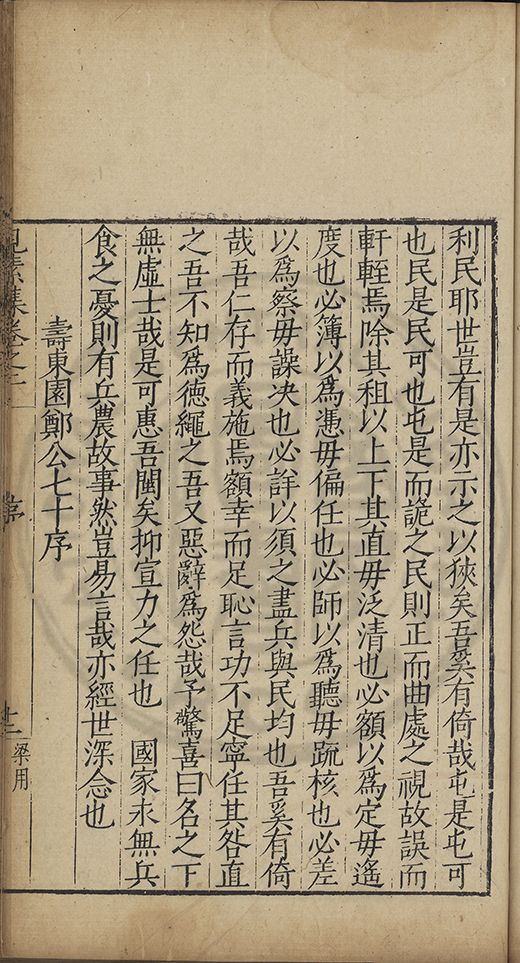 利民耶世豈有是亦示之以狹矣吾奚有倚哉屯是屯可
也民是民可也屯是而詭之民則正而曲處之視故誤而
軒輊焉除其租以上下其直毋泛清也必額以爲定毋遙
度也必簿以爲憑毋偏任也必師以爲聽毋疏核也必差
以爲察毋譟决也必詳以須之盡兵與民均也吾奚有倚
哉吾仁存而義施焉額幸而足恥言功不足寧任其咎直
之吾不知爲德繩之吾又惡辭爲怨哉予驚喜曰名之下
無虛士哉是可惠吾閩矣抑宣力之任也　國家未無兵
食之憂則有兵農故事然豈易言哉亦經世深念也
壽東園鄭公七十序
見素集卷之二
序
十二
梁用